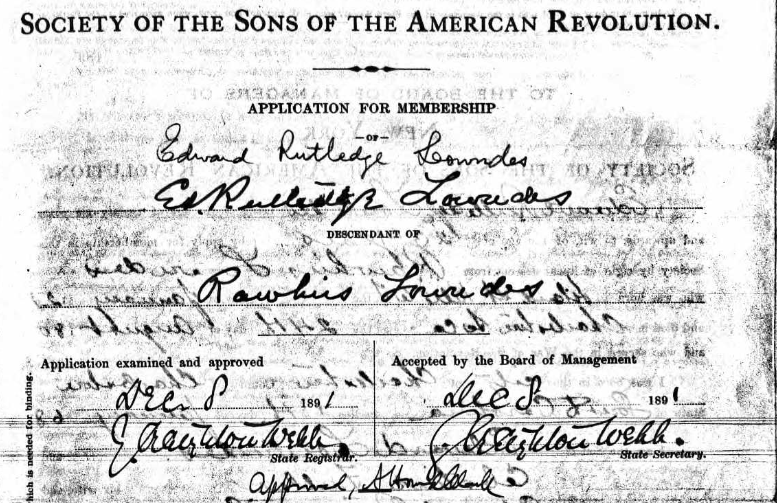 SOCIETY OF THE SONS OF THE AMERICAN REVOLUTION.
APPLICATION FOR MEMBERSHIP
-OF-
Edward Rutledge Lowndes
Ed. Rutledge Lowndes
DESCENDANT OF
Rawlins Lowndes
Application examined and approved
Dec 8 1891
J. Creighton Webb.
State Registrar.
Accepted by the Board of Management
Dec 8 1891
J. Creighton Webb.
State Secretary.
Approved,
which is needed for binding.